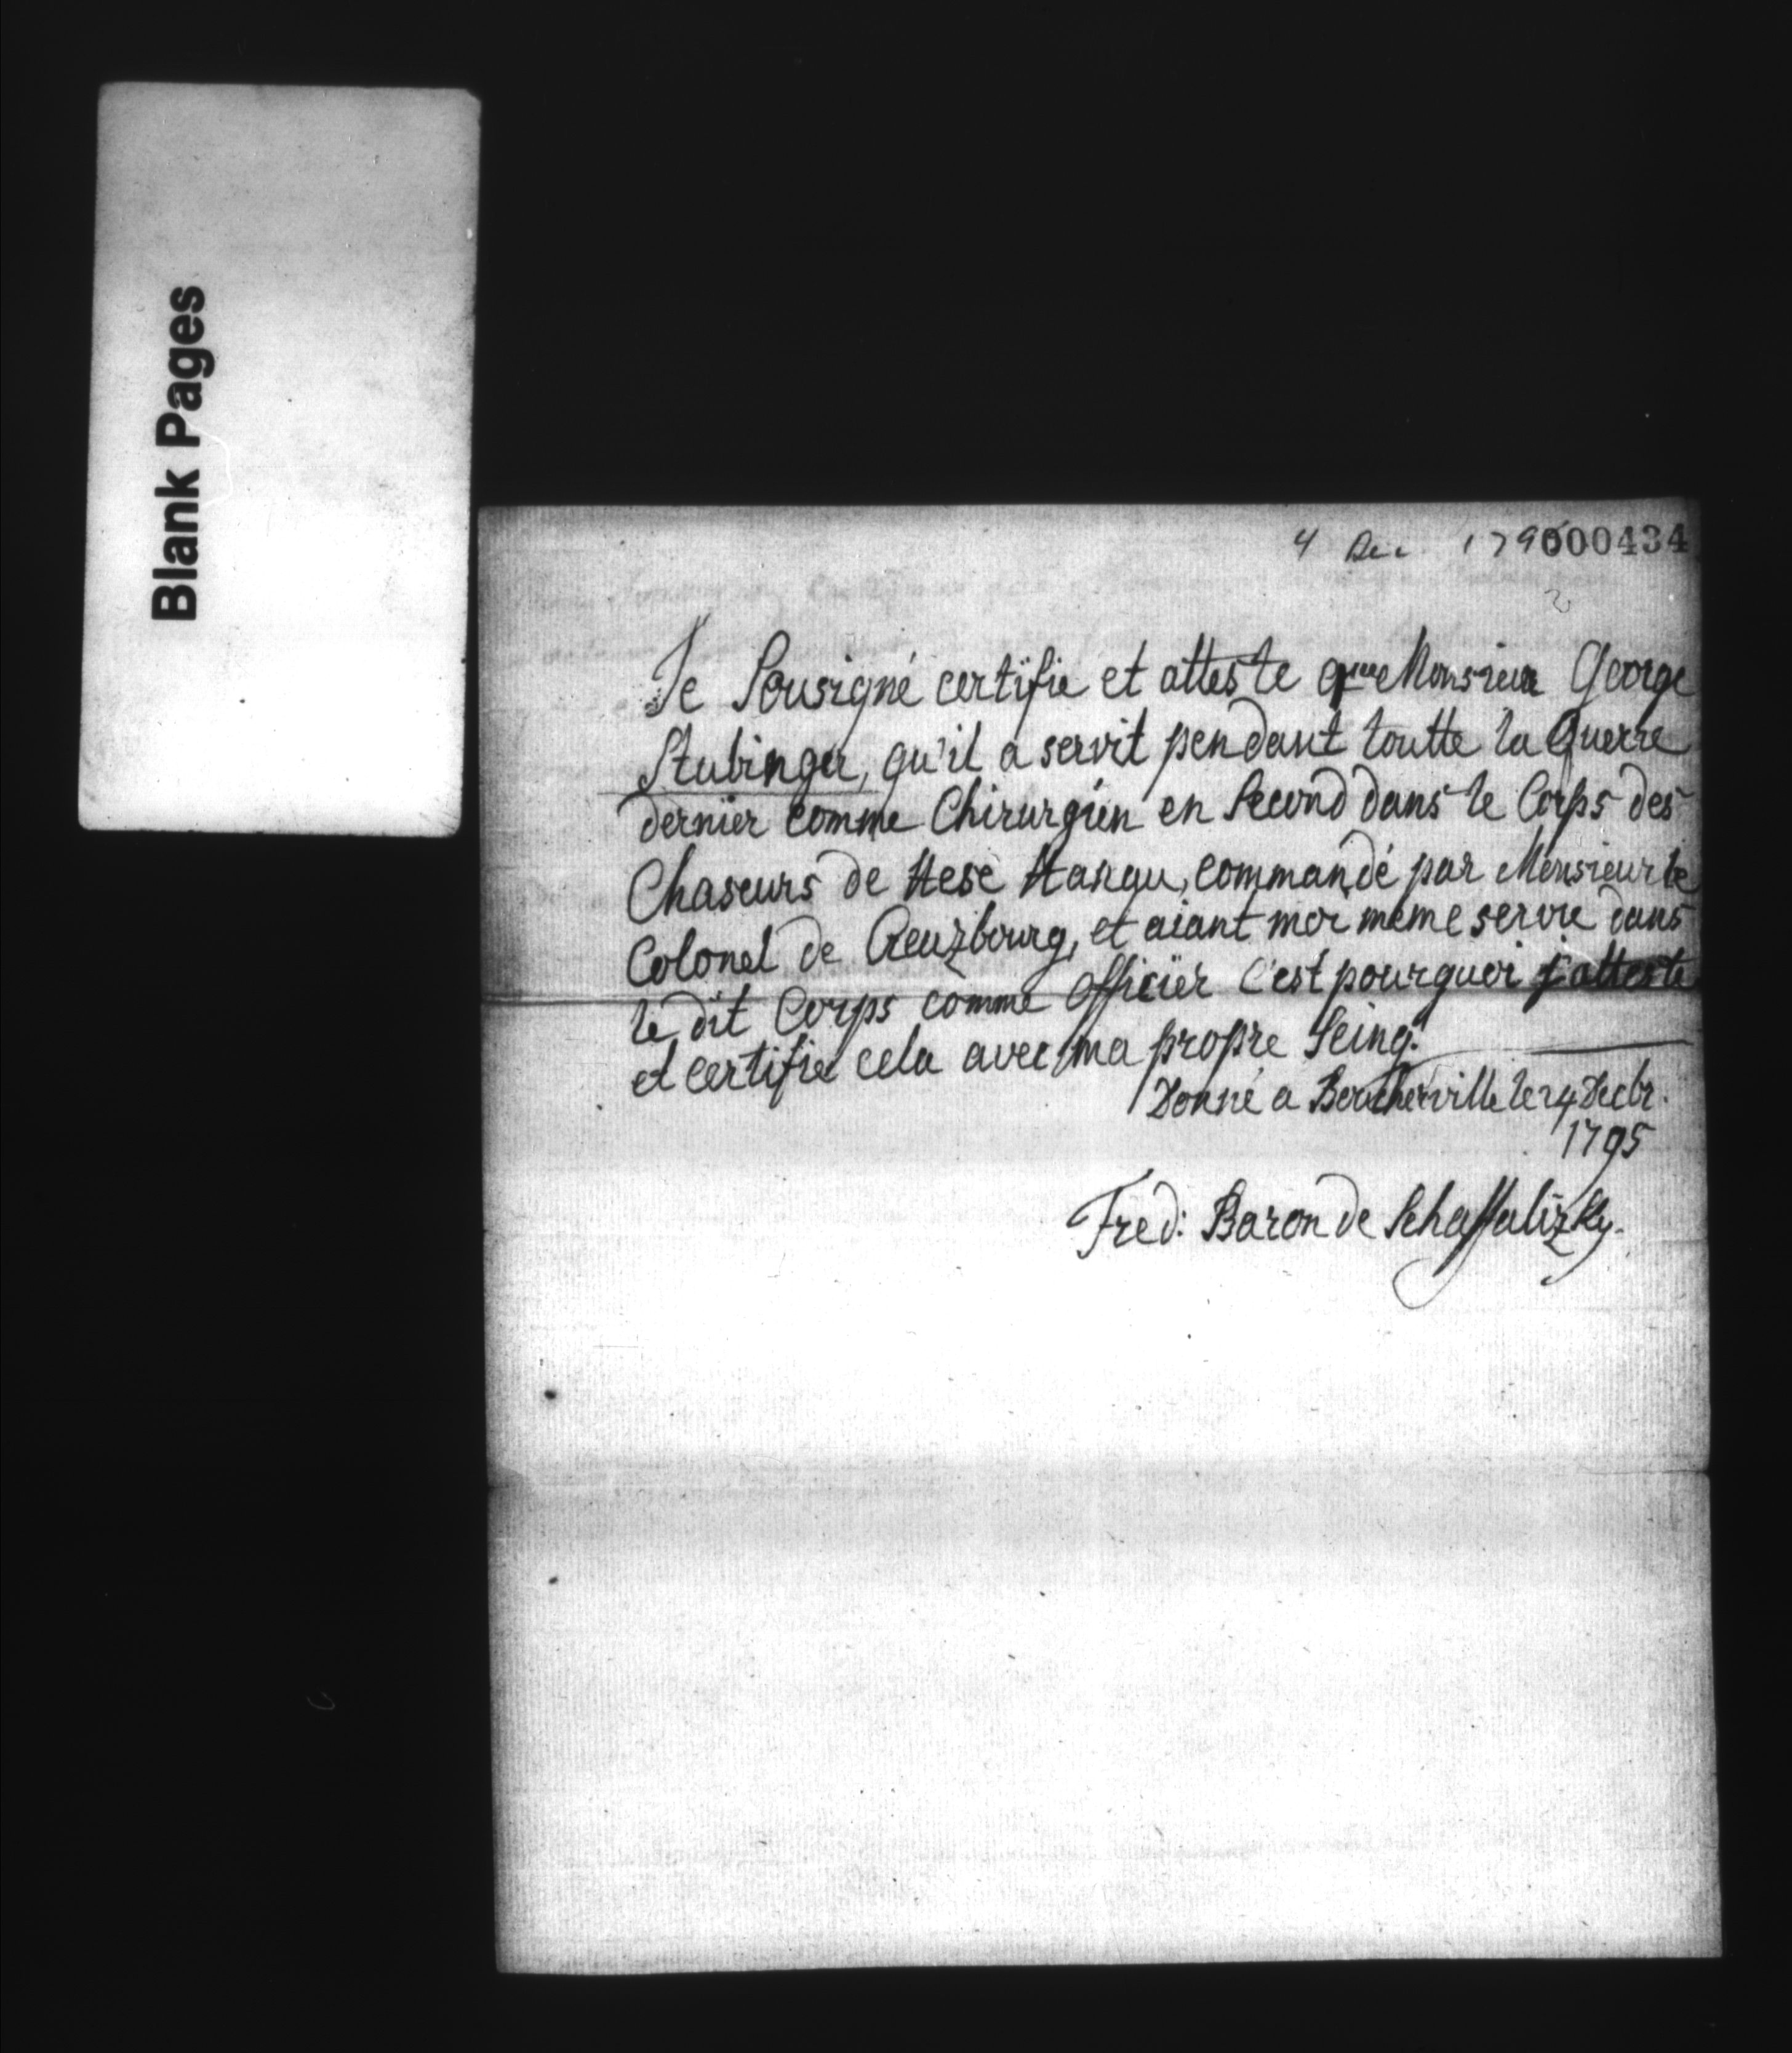 Blank Pages
4 Dec 179
000434
2
Je Sousigné certifie et atteste que Monsieur George
Stubinger, qu'il a servit pendant toutte la Guerre
dernier comme Chirurgien en Second dans le Corps des
Chaseurs de Hese Hanau, commandé par Monsieur le
Colonel de Creuzbourg, et aiant moi même servie dans
le dit Corps comme officier C'est pourquoi j'atteste
et certifie cela avec ma propre Seing.
Donné a Boucherville le 4 Decbr.
1795
Fred: Baron de Schaffalizky.